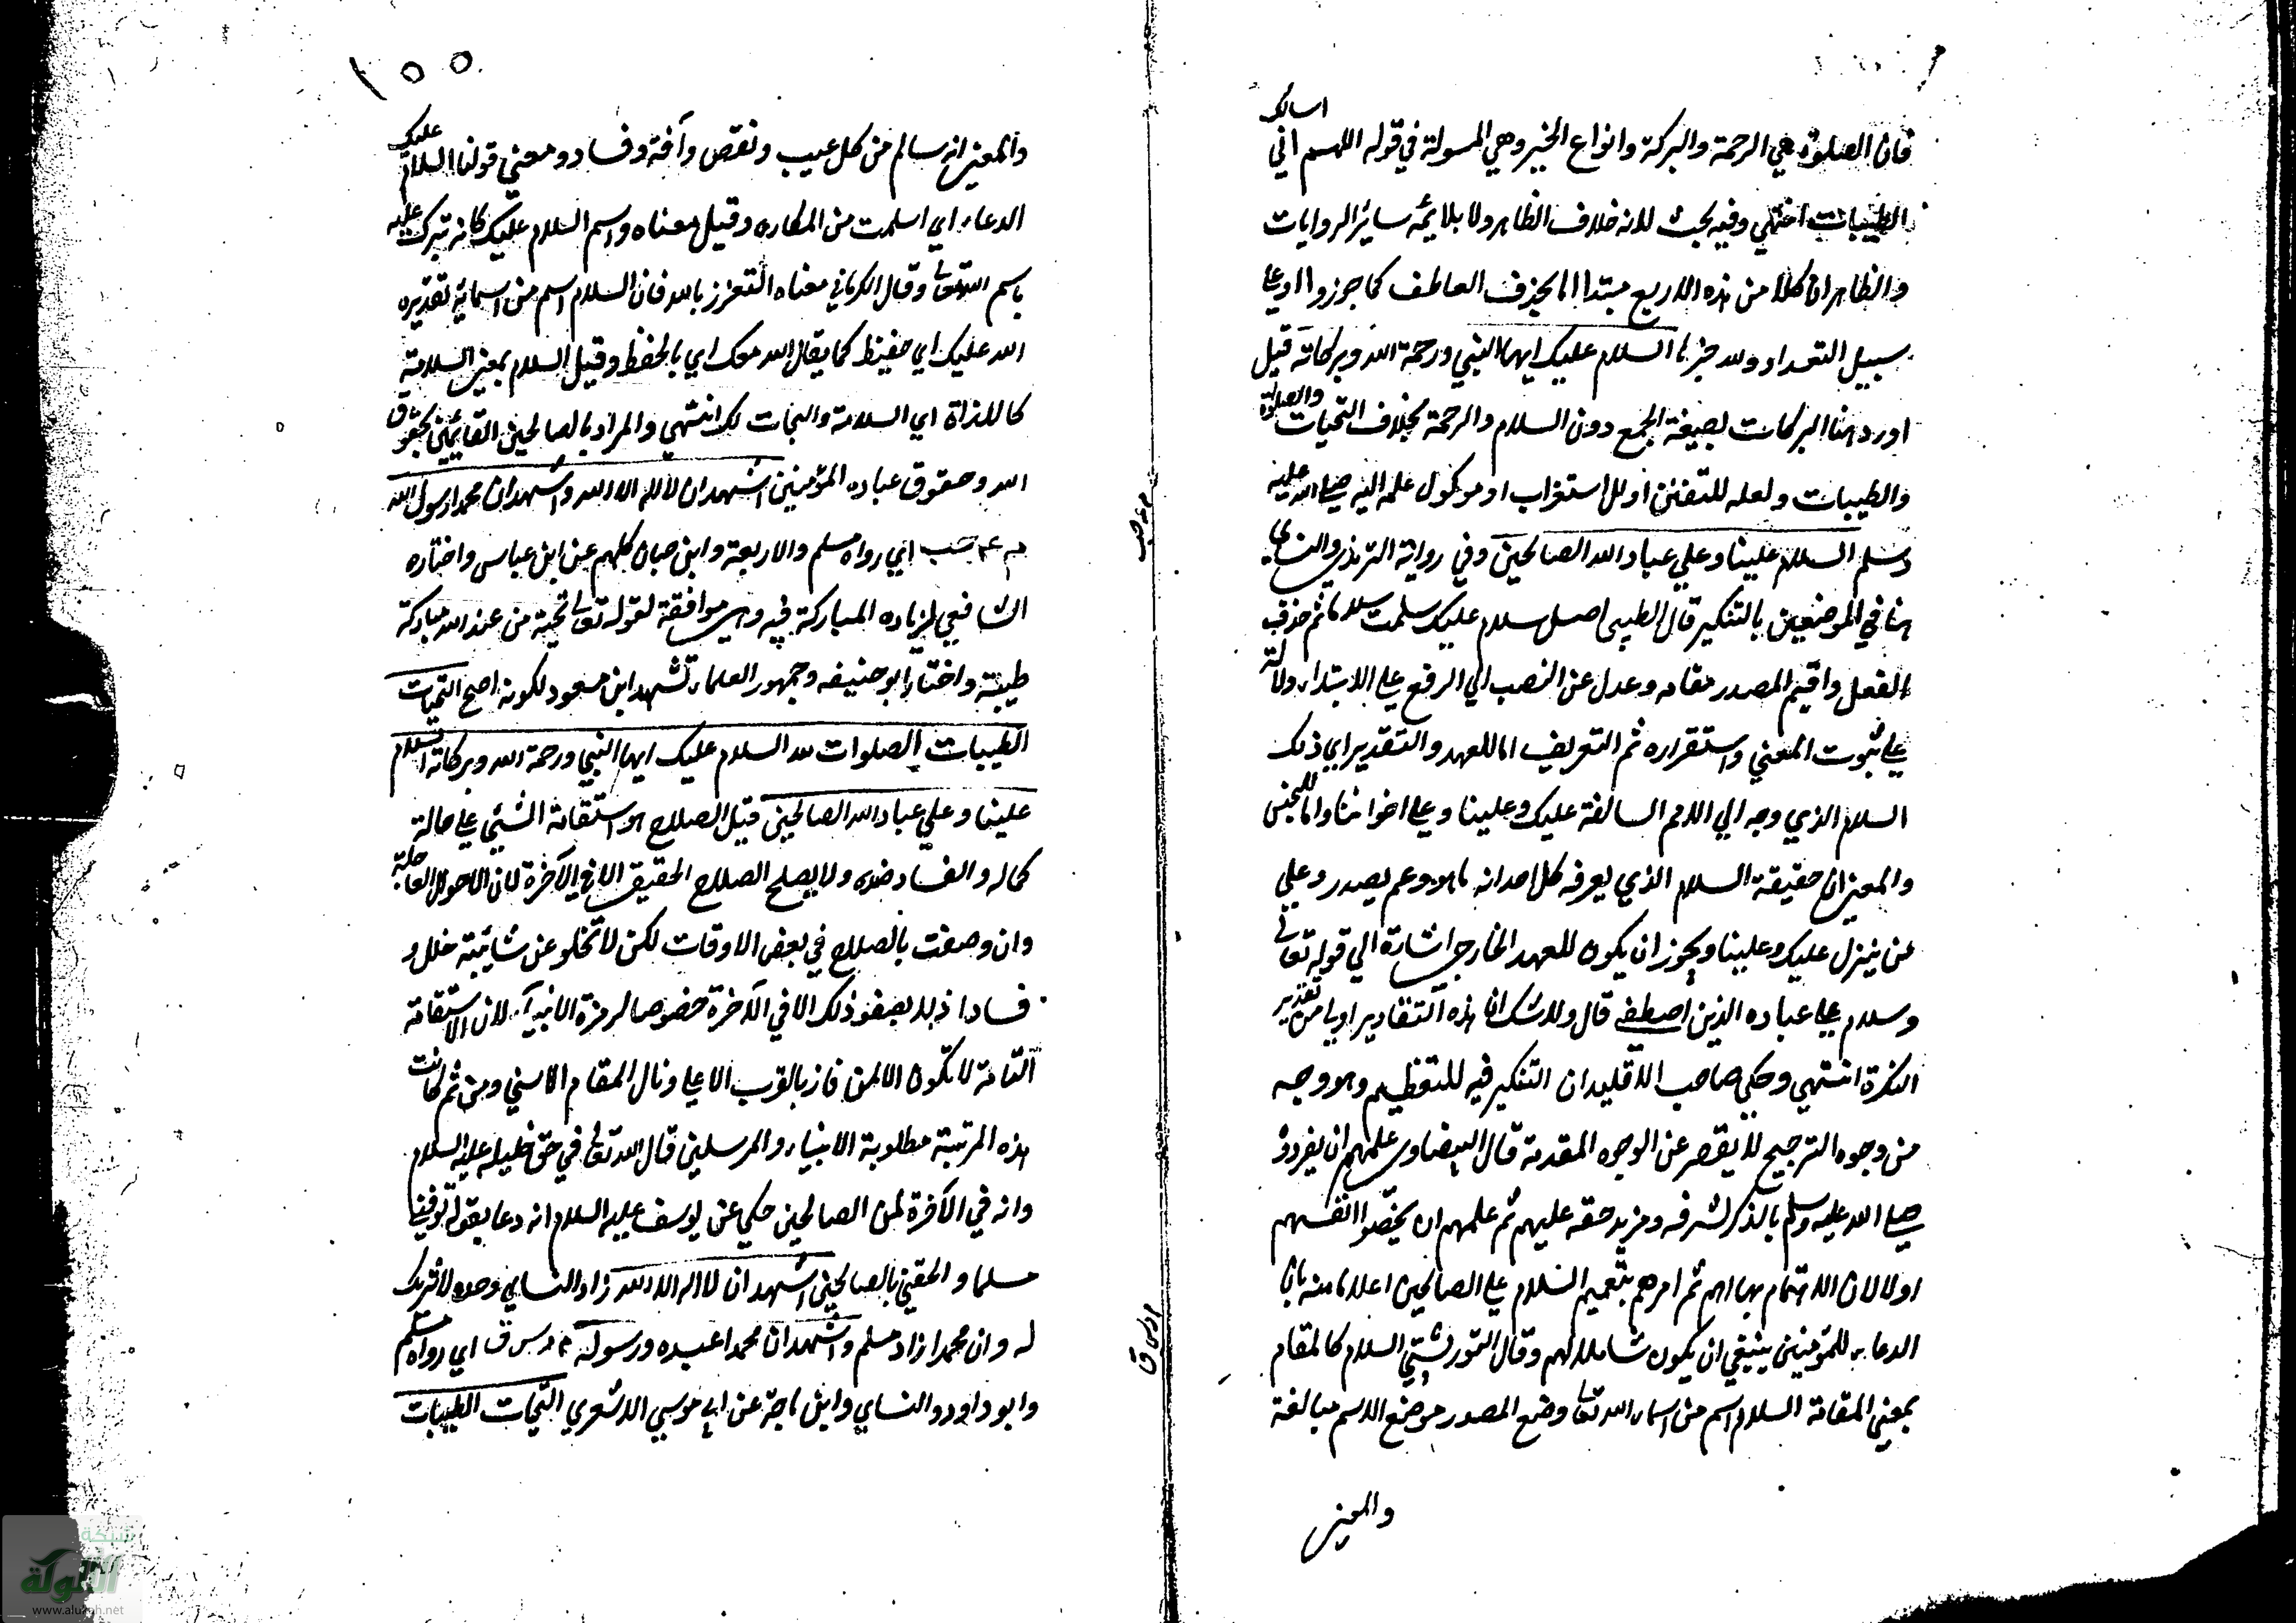 فان الصلوة هي الرحمة والبركة وانواع الخير وهي المسولة في قوله اللهم اني اسالك
الطيبات انتهي وفيه بحث لانه خلاف الظاهر ولا يلايمه سائر الروايات
والظاهر ان كلا من هذه الاربع مبتدا اما بحذف العاطف كما جوزوا او علي
سبيل التعداد ولله خبرها السلام عليك ايها النبي ورحمة الله وبركاته قيل
اورد هنا البركات بصيغة الجمع دون السلام والرحمة بخلاف التحيات والصلوة
والطيبات ولعله للتفنن او للاستغراب او موكول علمه اليه صلي الله عليه
وسلم السلام علينا وعلي عباد الله الصالحين وفي رواية الترمذي والنساي
هنا في الموضعين بالتنكير قال الطيبي اصل سلام عليك سلمت سلاما ثم حذف
الفعل واقيم المصدر مقامه وعدل عن النصب الي الرفع علي الابتداء دلالة
علي ثبوت المعني واستقراره ثم التعريف اما للعهد والتقدير اي ذلك
السلام الذي وجه الي الامم السالفة عليك وعلينا وعلي اخواننا واما للجنس
والمعني ان حقيقة السلام الذي يعرفه كل احد انه ما هو وعمن يصدر وعلي
من ينزل عليك وعلينا ويجوز ان يكون للعهد الخارجي اشارة الي قوله تعالي
وسلام علي عباده الذين اصطفي قال ولا شك ان هذه التقادير اولي من تقدير
النكرة انتهي وحكي صاحب الاقليد ان التنكير فيه للتعظيم وهو وجه
من وجوه الترجيح لا يقصر عن الوجوه المقدمة قال البيضاوي علمهم ان يفردوه
صلي الله عليه وسلم بالذكر لشرفه ومزيد حقه عليهم ثم علمهم ان يخصوا انفسهم
اولا لان الاهتمام بها اهم ثم امرهم بتعميم السلام علي الصالحين اعلاما منه بان
الدعاء للمؤمنين ينبغي ان يكون شاملا لهم وقال التوربشتي السلام كالمقام
بمعني المقامة السلام اسم من اسماء الله تعالي وضع المصدر موضع الاسم مبالغة
والمعني
م عه حب
م د س ق
١٥٥
والمعني انه سالم من كل عيب ونقص وآفة وفساد ومعني قولنا السلام عليك
الدعاء اي اسلمت من المكاره وقيل معناه واسم السلام عليك كانه تبرك عليه
باسم الله تعالي وقال الكرماني معناه التعزز بالله فان السلام اسم من اسمائه تقديره
الله عليك اي حفيظ كما يقال الله معك اي بالحفظ وقيل السلام بمعني السلامة
كاللذاة اي السلامة والنجات لك انتهي والمراد بالصالحين القائمين بحقوق
الله وحقوق عباده المؤمنين اشهد ان لا اله الا الله واشهد ان محمدا رسول الله
م عه حب اي رواه مسلم والاربعة وابن حبان كلهم عن ابن عباس واختاره
الشافعي لزياده المباركة فيه وهي موافقة لقوله تعالي تحية من عند الله مباركة
طيبة واختار ابو حنيفه وجمهور العلماء تشهد ابن مسعود لكونه اصح التحيات
الطيبات الصلوات لله السلام عليك ايها النبي ورحمة الله وبركاته السلام
علينا وعلي عباد الله الصالحين قيل الصلاح هو استقامة الشئي علي حالة
كماله والفساد ضده ولا يصلح الصلاح الحقيقي الا في الآخرة لان الاحوال العاجلة
وان وصفت بالصلاح في بعض الاوقات لكن لا تخلو عن شائبة خلل و
فساد اذ لا يصفو ذلك الا في الآخرة خصوصا لزمرة الانبياء لان الاستقامة
التامة لا تكون الا لمن فاز بالقرب الاعلي ونال المقام الاسني ومن ثم كانت
هذه المرتبة مطلوبة الانبياء والمرسلين قال الله تعالي في حق خليله عليه السلام
وانه في الآخرة لمن الصالحين حكي عن يوسف عليه السلام انه دعا بقوله توفني
مسلما والحقني بالصالحين اشهد ان لا اله الا الله زاد النساي وحده لا شريك
له وان محمدا زاد مسلم واشهد ان محمدا عبده ورسوله م د س ق اي رواه مسلم
وابو داود والنساي وابن ماجة عن ابي موسي الاشعري التحيات الطيبات
شبكة
الألوكة
www.alukah.net